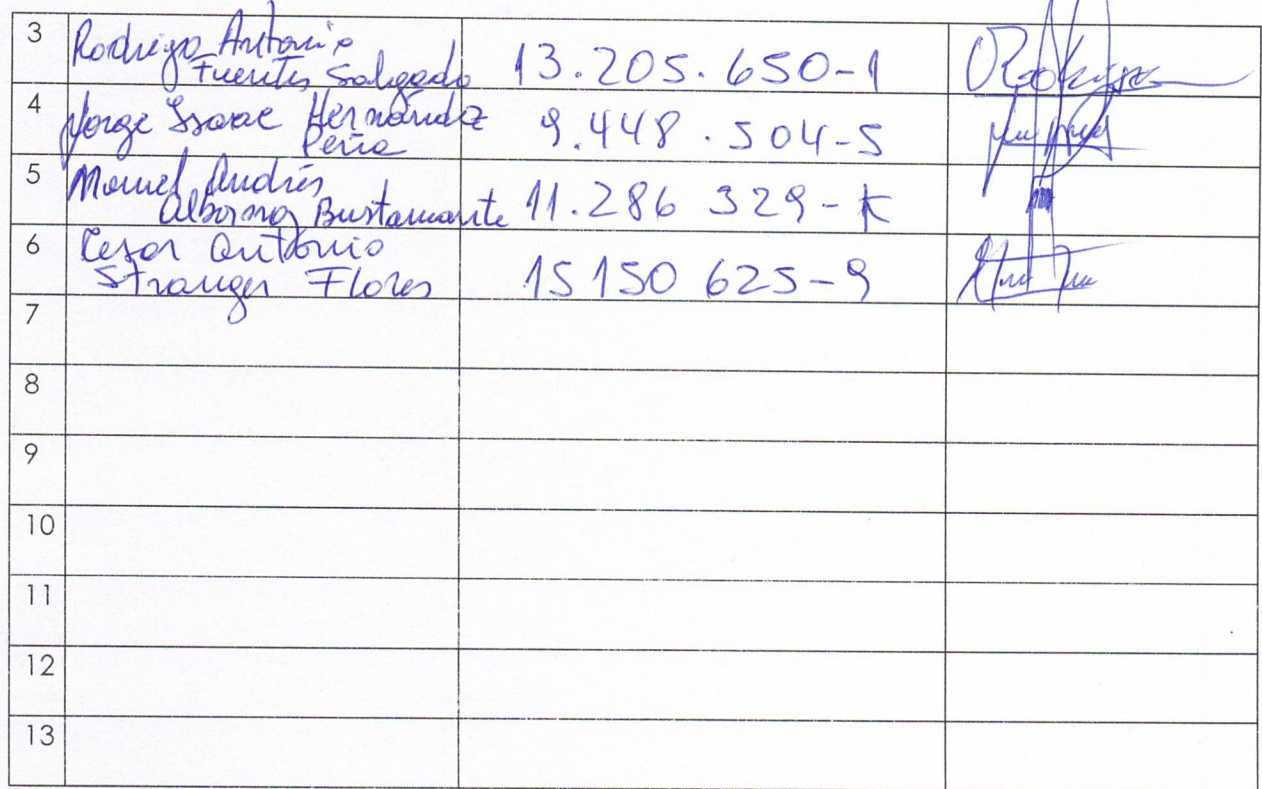 3 Rodrigo Antonio
Fuentes Salgado 13.205.650-1
4 Jorge Isaac Hernández
Peña 9.448.504-5
5 Manuel Andrés
Albornoz Bustamante 11.286 329-K
6 Cesar Antonio
Stranger Flores 15 150 625-9
7
8
9
10
11
12
13